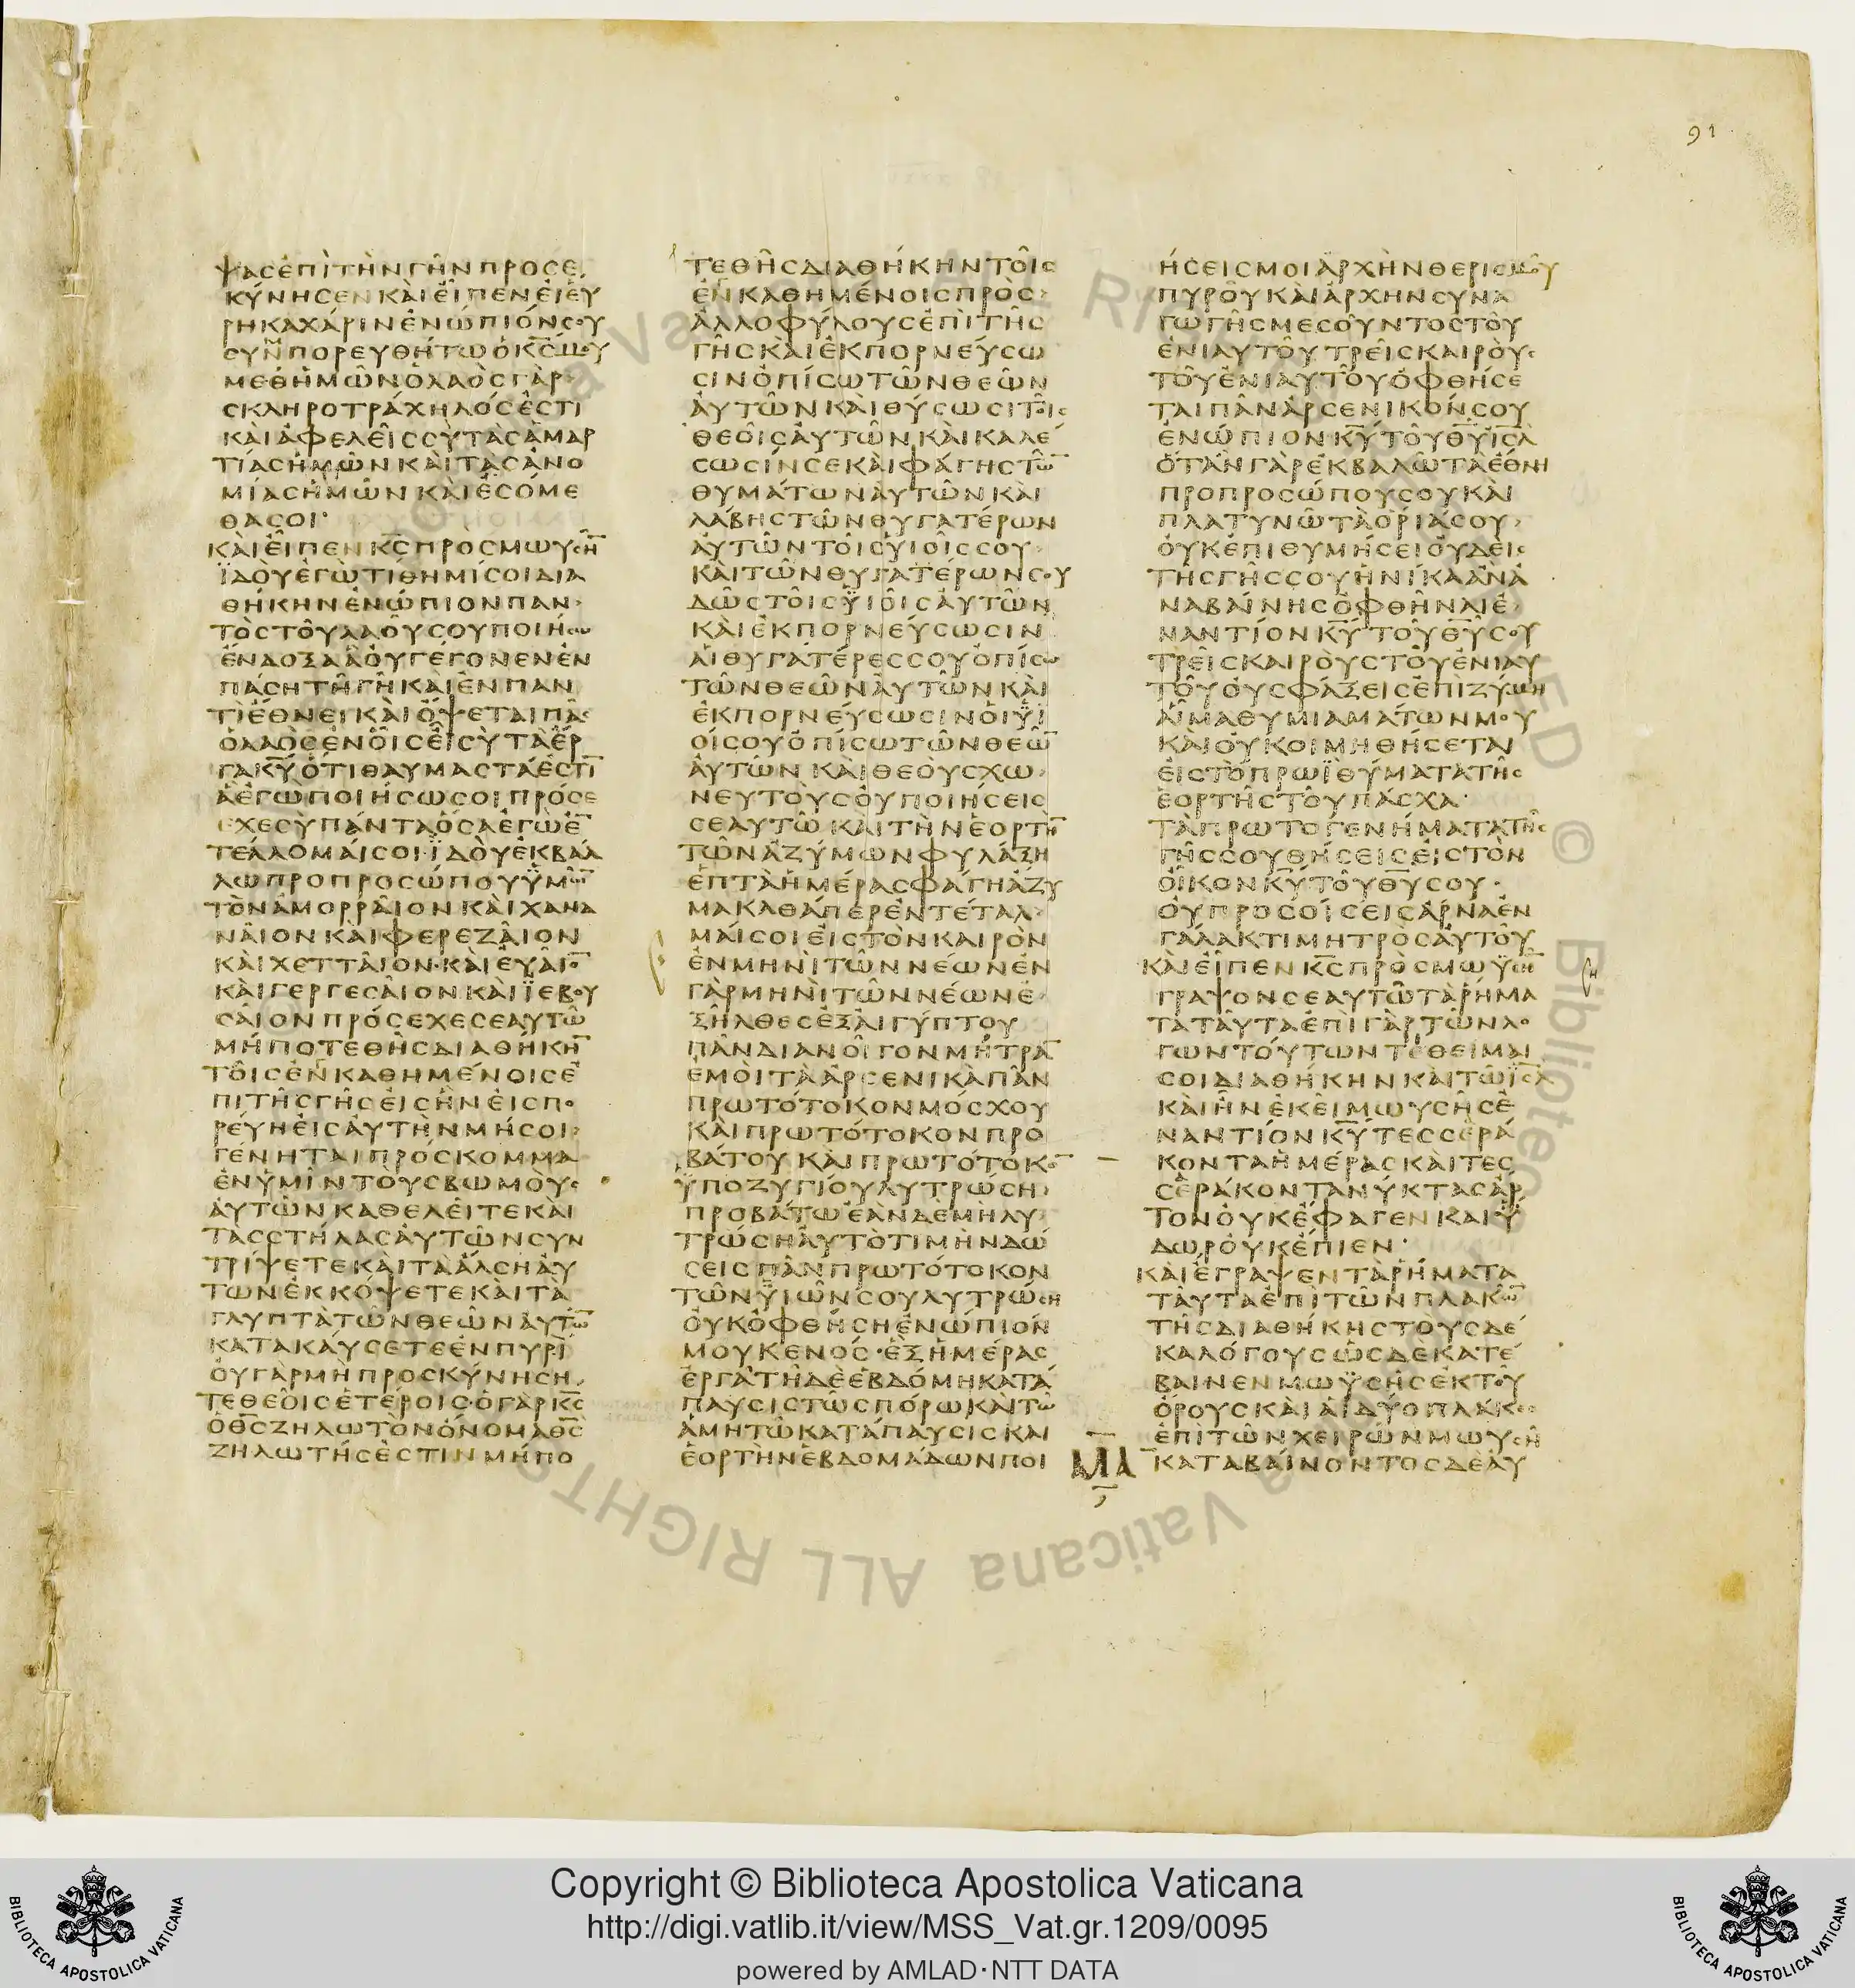 91
ψασἐπὶτὴνγῆνπροσε
κύνησενκαὶεἶπενεἰεὑ
ρηκαχάρινἐνώπιόνσου
συνπορευθήτωὁκ̅ς̅μου
μεθἡμῶνὁλαὸςγὰρ
σκληροτράχηλόσἐστι
καὶἀφελεῖςσὺτὰσἁμαρ
τίασἡμῶνκαὶτὰσἀνο
μίασἡμῶνκαὶἐσόμε
θασοί·
καὶεἶπενκ̅ς̅πρὸςμωυσῆ̅
ϊδοὺἐγὼτίθημίσοιδια
θήκηνἐνώπιονπαν
τὸςτοῦλαοῦσουποιήσω
ἔνδοξαἃοὐγέγονενἐν
πάσητῆγῆκαὶἐνπαν
τὶἔθνεικαὶὄψεταιπᾶς
ὁλαὸσἐνοἷςεἶσὺτὰἔρ
γακ̅υ̅ὅτιθαυμαστάἐστι̅
ἃἐγὼποιήσωσοιπρόσε
χεσὺπάνταὅσαἐγὼἐ̅
τέλλομαίσοι·ϊδοὺἐκβάλ
λωπροπροσώπουϋμῶ̅
τὸνἀμορραῖονκαὶχανα
ναῖονκαὶφερεζαῖον
καὶχετταῖον·καὶευαῖο̅
καὶγεργεσαῖονκαὶϊεβου
σαῖονπρόσεχεσεαυτῶ
μήποτεθῆσδιαθήκη̅
τοῖσἐνκαθημένοισἐ
πὶτῆσγῆσεἰσἣνεἰσπο
ρεύηεἰσαὐτὴνμήσοι
γένηταιπρόσκομμα
ἐνὑμῖντοὺσβωμοὺς
αὐτῶνκαθελεῖτεκαὶ
τασστήλασαὐτῶνσυν
τρίψετεκαὶτὰἄλσηαὐ
τωνἐκκόψετεκαὶτὰ
γλυπτὰτῶνθεῶναὐτῶ̅
κατακαύσετεἐνπυρὶ
οὐγὰρμὴπροσκύνηση
τεθεοῖσἑτέροισ·ὁγὰρκ̅ς̅
ὁθ̅ς̅ζηλωτὸνὄνομαθ̅ς̅
ζηλωτήσἐστινμήπο
τεθῆσδιαθήκηντοῖς
ἐνκαθημένοισπρὸς
ἀλλοφύλουσἐπὶτῆς
γῆσκαὶἐκπορνεύσω
σινὀπίσωτῶνθεῶν
αὐτῶνκαὶθύσωσιτοῖς
θεοῖσαὐτῶνκαὶκαλέ
σωσίνσεκαὶφάγηστῶ̅
θυμάτωναὐτῶνκαὶ
λάβηστῶνθυγατέρων
αὐτῶντοῖσυἱοῖσσου
καὶτῶνθυγατέρωνσου
δῶστοῖσϋἱοῖσαὐτῶν
καὶἐκπορνεύσωσιν
αἱθυγατέρεςσουὀπίσω
τῶνθεῶναὐτῶνκαὶ
ἐκπορνεύσωσινοἱϋἱ
οίσουὀπίσωτῶνθεῶ̅
αὐτῶνκαὶθεοὺσχω
νευτοὺσοὐποιήσεις
σεαυτῶκαὶτὴνἑορτὴ̅
τῶνἀζύμωνφυλάξη
ἑπτὰἡμέρασφάγηἄζυ
μακαθάπερἐντέταλ
μαίσοιεἰστὸνκαιρὸν
ἐνμηνὶτῶννέωνἐν
γὰρμηνὶτῶννέωνἐ
ξῆλθεσἐξαἰγύπτου
πᾶνδιανοῖγονμήτρα̅
ἐμοὶτὰἀρσενικὰπᾶν
πρωτότοκονμόσχου
καὶπρωτότοκονπρο
βάτουκαὶπρωτότοκο̅
ὑποζυγίουλυτρώση
προβάτωἐὰνδεμὴλυ
τρώσηαὐτὸτιμὴνδώ
σεισπᾶνπρωτότοκον
τῶνϋἱῶνσουλυτρώση
οὐκὀφθήσηἐνώπιον
μουκενόσ·ἓξἡμέρας
ἐργᾶτῆδὲἑβδόμηκατά
παυσιςτῶσπόρωκαὶτῶ
ἀμητῶκατάπαυσισκαι
ἑορτὴνἑβδομάδωνποι
ήσεισμοιἀρχὴνθερισμοῦ
πυροῦκαὶἀρχηνσυνα
γωγῆσμεσοῦντοστοῦ
ἐνιαυτοῦτρεῖσκαιροὺς
τοῦἐνιαυτοῦὀφθήσε
ταιπᾶνἀρσενικόνσου
ἐνώπιονκ̅υ̅τοῦθ̅υ̅ι̅σ̅λ̅
ὅτανγὰρἐκβαλῶταἔθνη
προπροσώπουσουκαὶ
πλατυνῶτὰὅριάσου
οὐκἐπιθυμήσειοὐδεὶς
τῆσγῆσσουἡνίκαἀνὰ
ναβαίνησὀφθῆναιἐ
ναντίονκ̅υ̅τοῦθ̅υ̅σου
τρεῖσκαιροὺστοῦἐνιαυ
τοῦοὐσφάξεισἐπὶζύμη
αἷμαθυμιαμάτωνμου
καὶοὐκοιμηθήσεται
εἰστὸπρωϊθύματατῆς
ἑορτῆστοῦπάσχα·
τὰπρωτογενήματατῆς
γῆσσουθήσεισεἰστὸν
οἶκονκ̅υ̅τοῦθ̅υ̅σου·
οὐπροσοίσεισἄρναἐν
γάλακτιμητρὸσαὐτοῦ
καὶεἶπενκ̅ς̅πρὸσμωϋσῆ̅
γραψονσεαυτῶτὰῥήμα
ταταῦταἐπὶγὰρτῶνλο
γωντούτωντέθειμαι
σοιδιαθήκηνκαὶτῶι̅σ̅λ̅
καὶἦνἐκεῖμωυσῆσἐ
ναντίονκ̅υ̅τεσσερά
κονταἡμέρασκαὶτες
σεράκοντανύκτασἄρ
τονοὐκἔφαγενκαιὕ
δωροὐκἔπιεν·
καὶἔγραψεντὰῥήματα
ταῦταἐπὶτῶνπλακῶ̅
τῆσδιαθήκηστουσδέ
καλόγουσὡσδὲκατέ
βαινενμωϋσῆσἐκτοῦ
ὄρουσκαὶαἱδύοπλάκες
ἐπὶτῶνχειρῶνμωυσῆ
καταβαίνοντοσδὲαὐ
Copyright © Biblioteca Apostolica Vaticana
http://digi.vatlib.it/view/MSS_Vat.gr.1209/0095
powered by AMLAD·NTT DATA
BIBLIOTECA APOSTOLICA VATICANA
BIBLIOTECA APOSTOLICA VATICANA